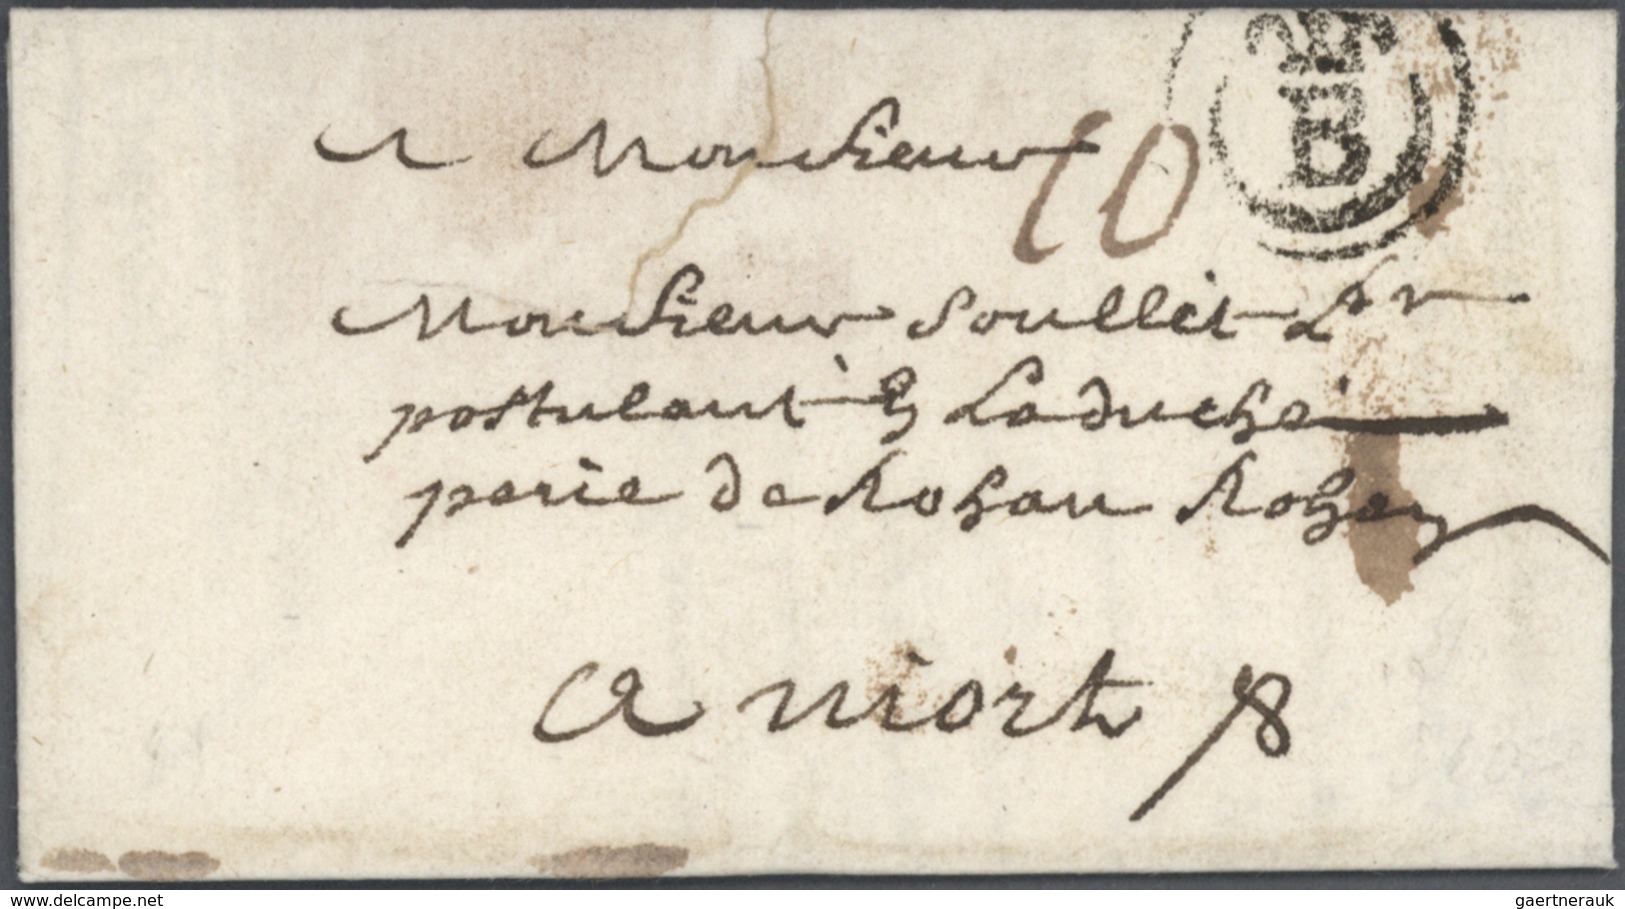 A Monsieur
10
B
Monsieur Soullet
postulant à Laduché
perie de Rohan Rohan
A niort
delcampe.net
gaertnerauk